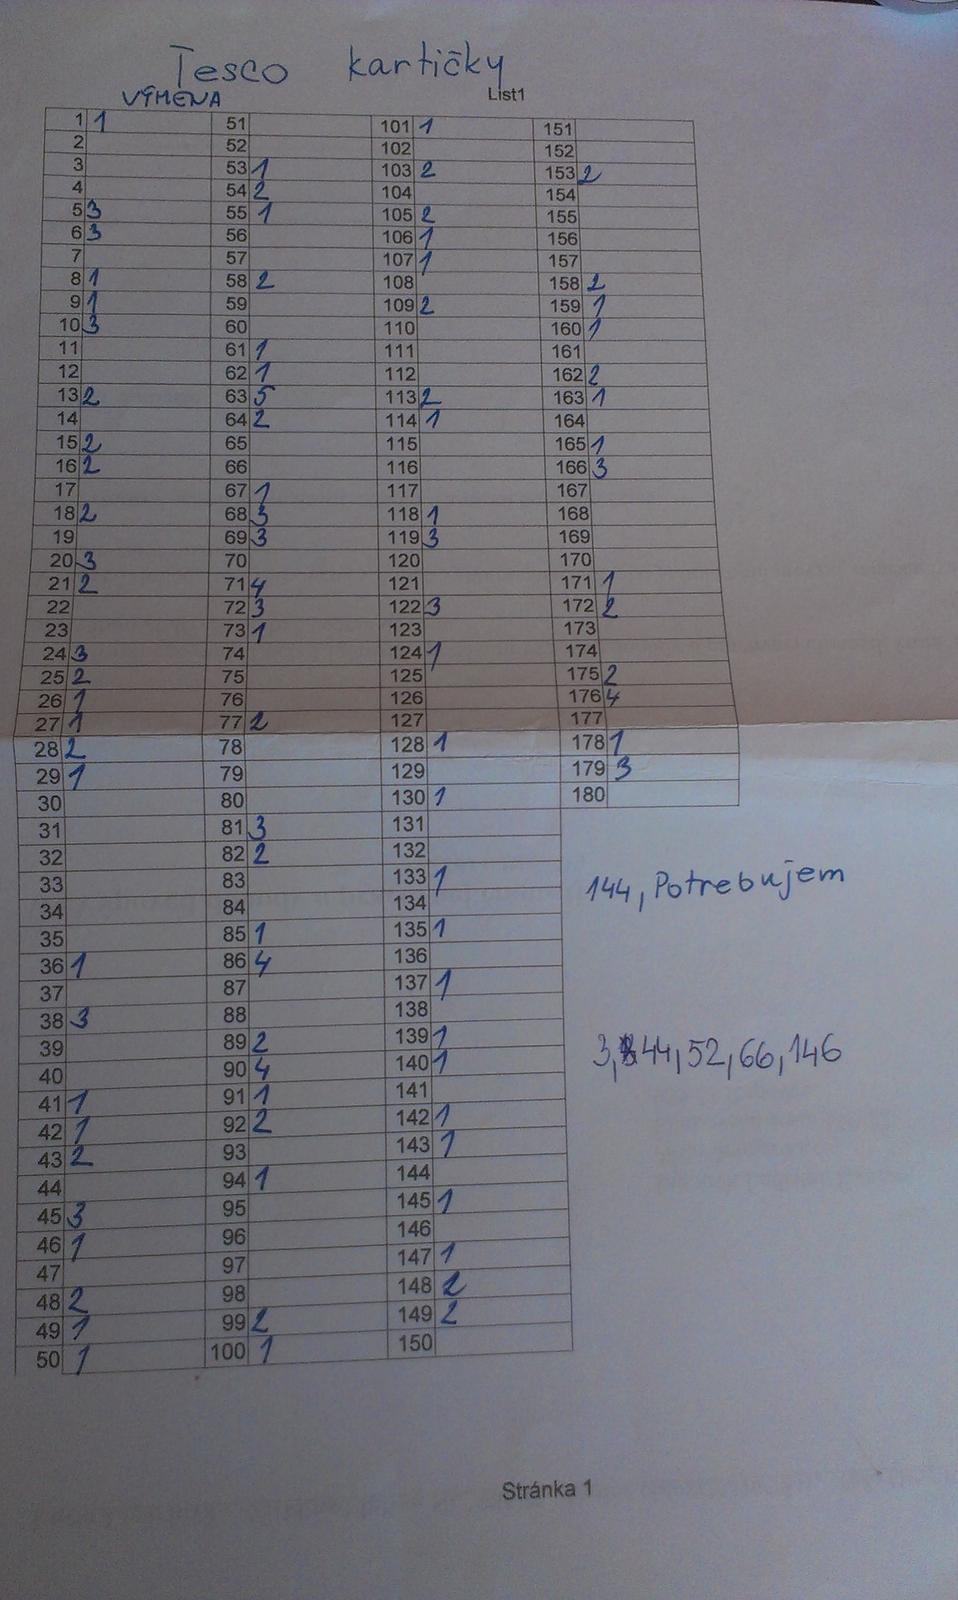 Tesco kartičky
VÝMENA List1
1 1 51 101 1 151
2 52 102 152
3 53 1 103 2 153 2
4 54 2 104 154
5 3 55 1 105 2 155
6 3 56 106 1 156
7 57 107 1 157
8 1 58 2 108 158 2
9 1 59 109 2 159 1
10 3 60 110 160 1
11 61 1 111 161
12 62 1 112 162 2
13 2 63 5 113 2 163 1
14 64 2 114 1 164
15 2 65 115 165 1
16 2 66 116 166 3
17 67 1 117 167
18 2 68 3 118 1 168
19 69 3 119 3 169
20 3 70 120 170
21 2 71 4 121 171 1
22 72 3 122 3 172 2
23 73 1 123 173
24 3 74 124 1 174
25 2 75 125 175 2
26 1 76 126 176 4
27 1 77 2 127 177
28 2 78 128 1 178 1
29 1 79 129 179 3
30 80 130 1 180
31 81 3 131
32 82 2 132
33 83 133 1
34 84 134
35 85 1 135 1
36 1 86 4 136
37 87 137 1
38 3 88 138
39 89 2 139 1
40 90 4 140 1
41 1 91 1 141
42 1 92 2 142 1
43 2 93 143 1
44 94 1 144
45 3 95 145 1
46 1 96 146
47 97 147 1
48 2 98 148 2
49 1 99 2 149 2
50 1 100 1 150
144, Potrebujem
3, 44, 52, 66, 146
Stránka 1